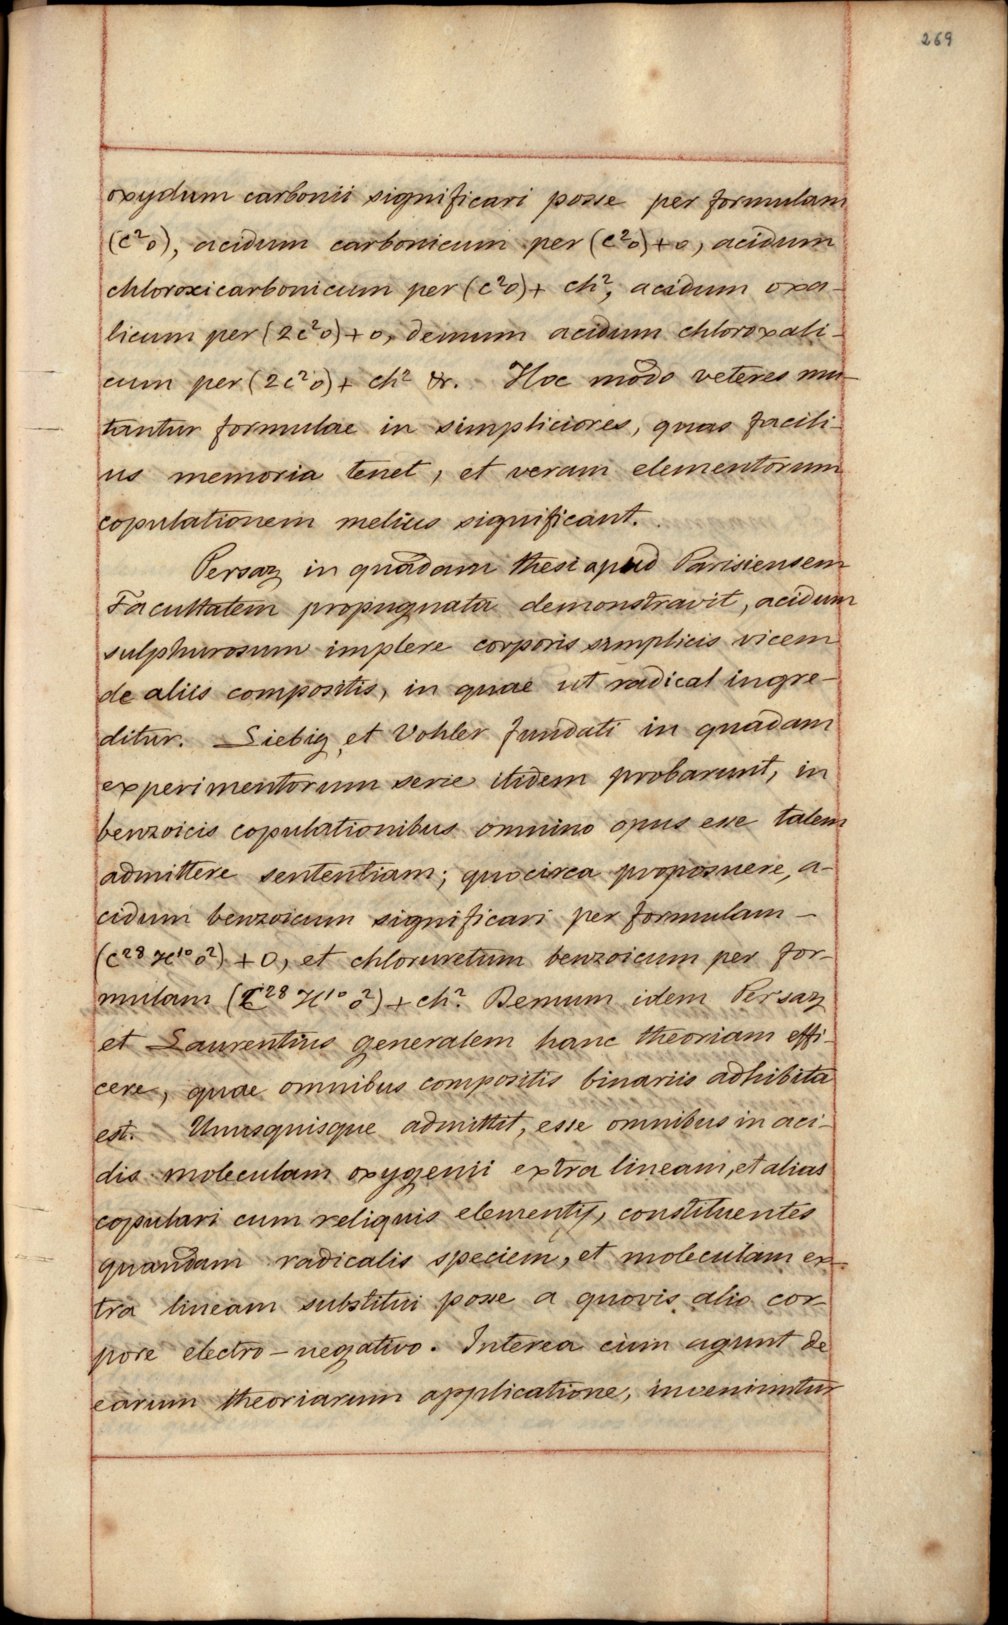 269
oxydum carbonii significari posse per formulam
(c²o), acidum carbonicum per (c²o)+o, acidum
chloroxicarbonicum per (c²o)+ ch², acidum oxa-
licum per (2c²o)+o, demum acidum chloroxali-
cum per (2c²o)+ ch² &r. Hoc modo veteres mu-
tantur formulae in simpliciores, quas facili-
us memoria tenet, et veram elementorum
copulationem melius significant.
Persaz in quadam thesi apud Parisiensem
Facultatem propugnata demonstravit, acidum
sulphurosum implere corporis simplicis vicem
de aliis compositis, in quae ut radical ingre-
ditur. Liebig et Vohler fundati in quadam
experimentorum serie itidem probarunt, in
benzoicis copulationibus omnino opus esse talem
admittere sententiam; quocirca proposuere, a-
cidum benzoicum significari per formulam -
(c²⁸ H¹⁰ o²) + O, et chloruretum benzoicum per for-
mulam (C²⁸ H¹⁰ o²) + ch². Demum idem Persaz
et Laurentius generalem hanc theoriam effi-
cere, quae omnibus compositis binariis adhibita
est. Unusquisque admittit, esse omnibus in aci-
dis moleculam oxygenii extra lineam, et alias
copulari cum reliquis elementis, constituentes
quandam radicalis speciem, et moleculam ex-
tra lineam substitui posse a quovis alio cor-
pore electro-negativo. Interea cum agunt de
earum theoriarum applicatione, inveniuntur